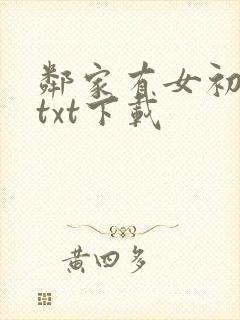 鄰家有女初
txt下載
黃四多